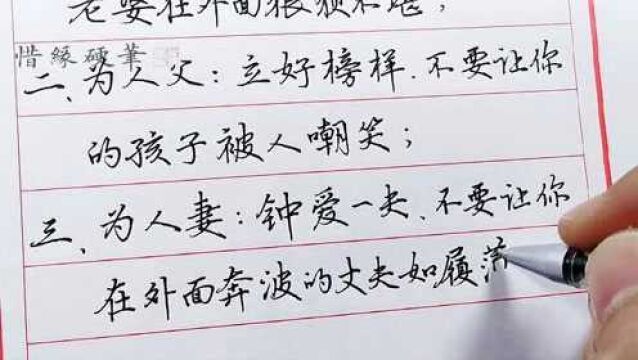 老婆在外面狼狈不堪；
惜缘硬筆
二、为人父：立好榜样、不要让你
的孩子被人嘲笑；
三、为人妻：钟爱一夫、不要让你
在外面奔波的丈夫如履薄